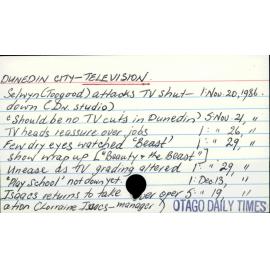 DUNEDIN CITY-TELEVISION
Selwyn (Toogood) attacks TV shut- 1: Nov. 20, 1986.
down (Dn. studio)
"Should be no TV cuts in Dunedin" 5: Nov. 21, "
TV heads reassure over jobs 1: " 26, "
Few dry eyes watched "Beast" 1: " 29, "
show wrap up ["Beauty & the Beast"]
Unease as TV grading altered 1: " 29, "
"Play School" not down yet. 1: Dec. 13, "
Isaacs returns to take over oper- 5: " 19, "
ation (Lorraine Isaacs-manager)
OTAGO DAILY TIMES